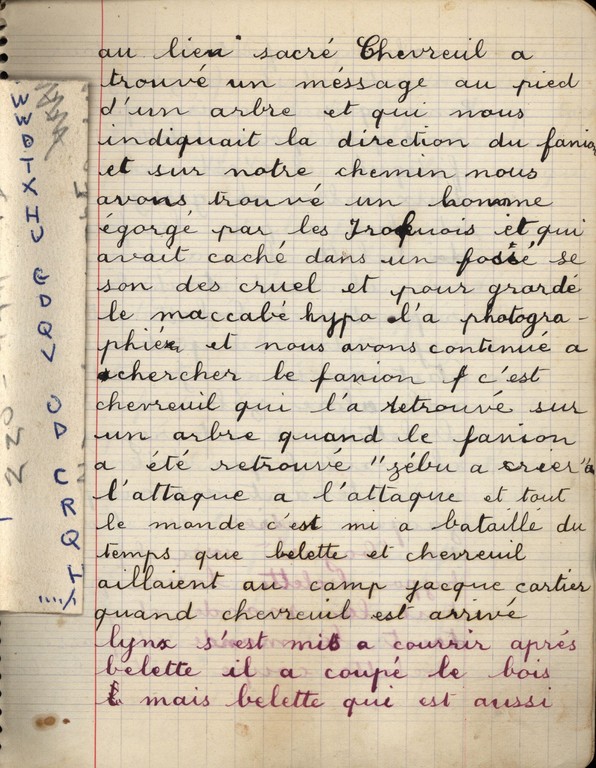 au lieu sacré Chevreuil a
trouvé un méssage au pied
d'un arbre et qui nous
indiquait la direction du fanion
et sur notre chemin nous
avons trouvé un homme
égorgé par les Iroquois et qui
avait caché dans un fossé se
son des cruel et pour grardé
le maccabé hypo l'a photogra-
phiér et nous avons continué a
chercher le fanion c'est
chevreuil qui l'a retrouvé sur
un arbre quand le fanion
a été retrouvé "zébu a crier"a
l'attaque a l'attaque et tout
le monde c'est mi a bataillé du
temps que belette et chevreuil
aillaient au camp jacque cartier
quand chevreuil est arrivé
lynx s'est mis a courrir aprés
belette il a coupé le bois
mais belette qui est aussi